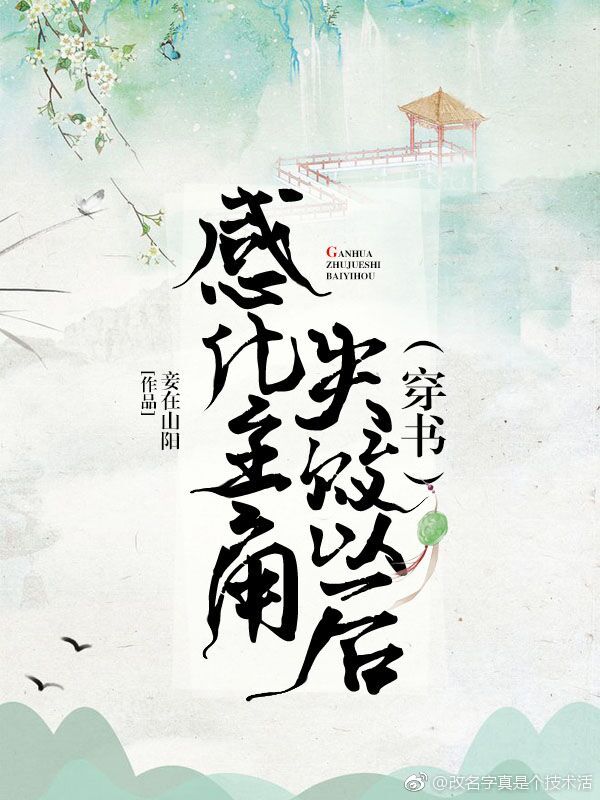 感化主角
失败以后
(穿书)
GANHUA
ZHUJUESHI
BAIYIHOU
妾在山阳
[作品]
@改名字真是个技术活